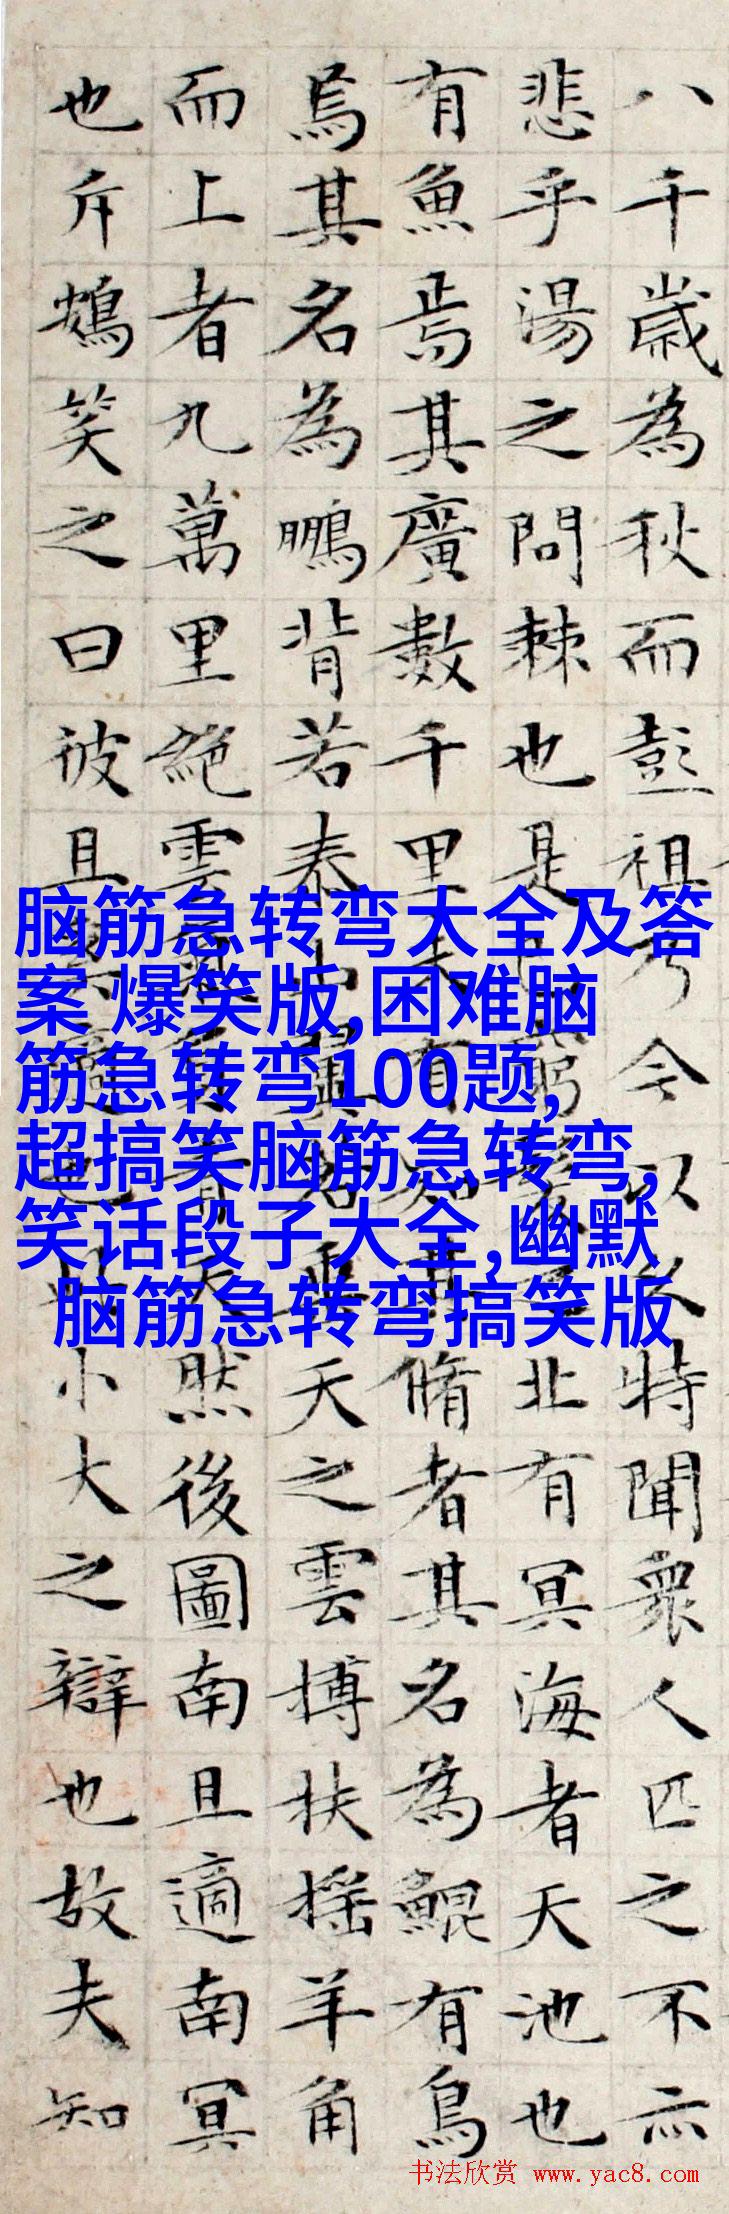 八千歲為秋而彭祖乃今以久特聞衆人匹之不亦
悲乎湯之問棘也是已窮髮之北有冥海者天池也
有魚焉其廣數千里未有知其脩者其名為鯤有鳥
焉其名為鵬背若泰山翼若垂天之雲搏扶摇羊角
而上者九萬里絕雲氣負青天然後圖南且適南冥
也斥鴳笑之曰彼且奚適也此小大之辯也故夫知
脑筋急转弯大全及答
案 爆笑版,困难脑
筋急转弯100题,
超搞笑脑筋急转弯,
笑话段子大全,幽默
脑筋急转弯搞笑版
书法欣赏 www.yac8.com